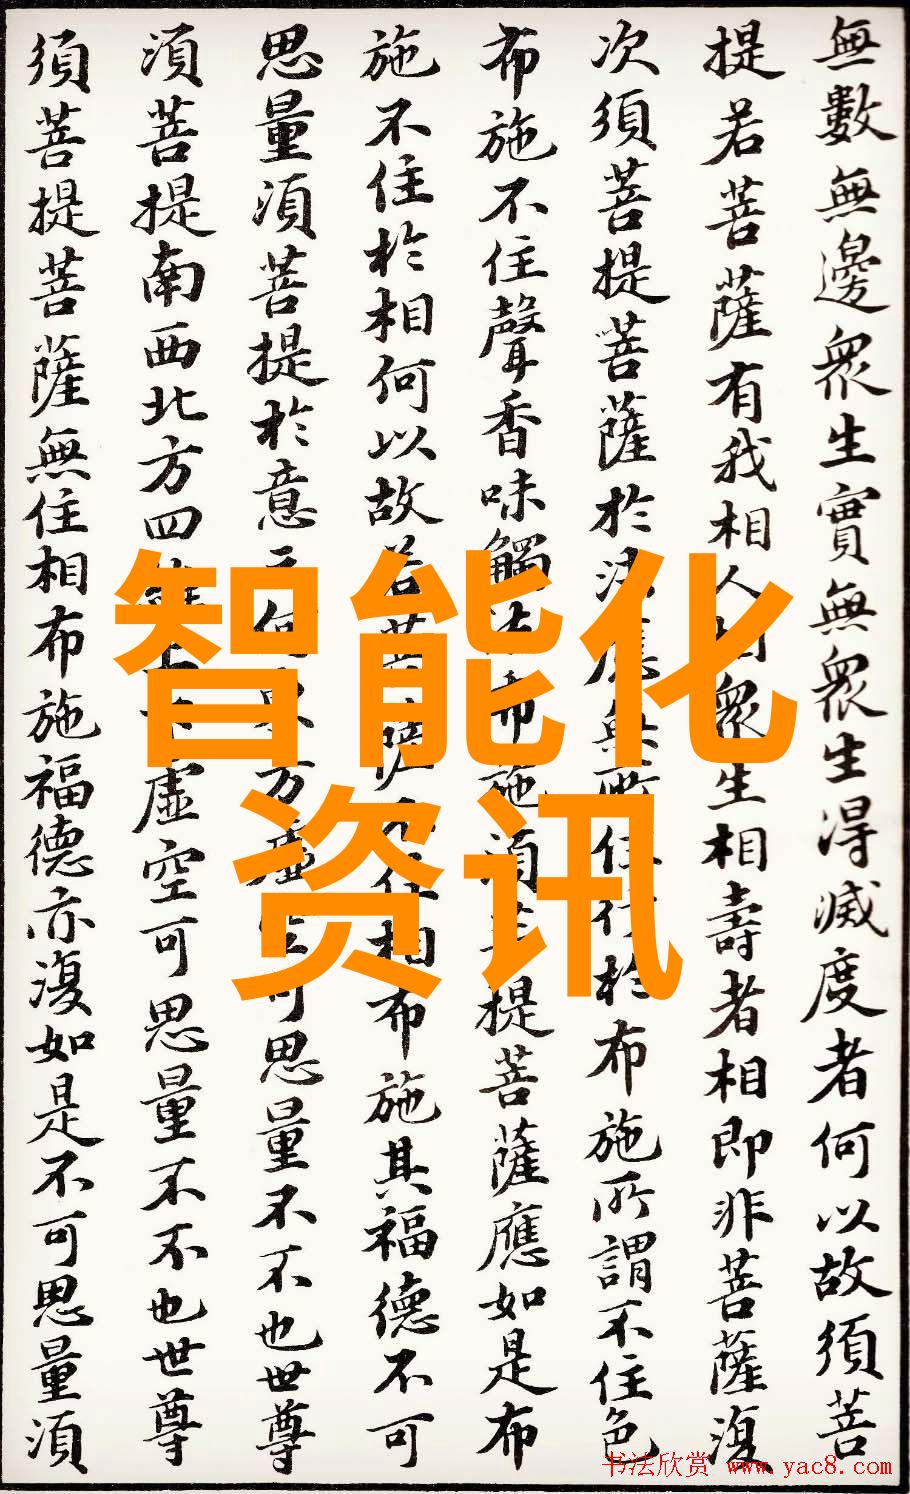 無數無邊衆生實無衆生得滅度者何以故須菩
提若菩薩有我相人相衆生相壽者相即非菩薩復
次須菩提菩薩於法應無所住行於布施所謂不住色
布施不住聲香味觸法布施須菩提菩薩應如是布
施不住於相何以故若菩薩不住相布施其福德不可
思量須菩提於意云何東方虛空可思量不不也世尊
須菩提南西北方四維上下虛空可思量不不也世尊
須菩提菩薩無住相布施福德亦復如是不可思量須
智能化
资讯
书法欣赏 www.yac8.com